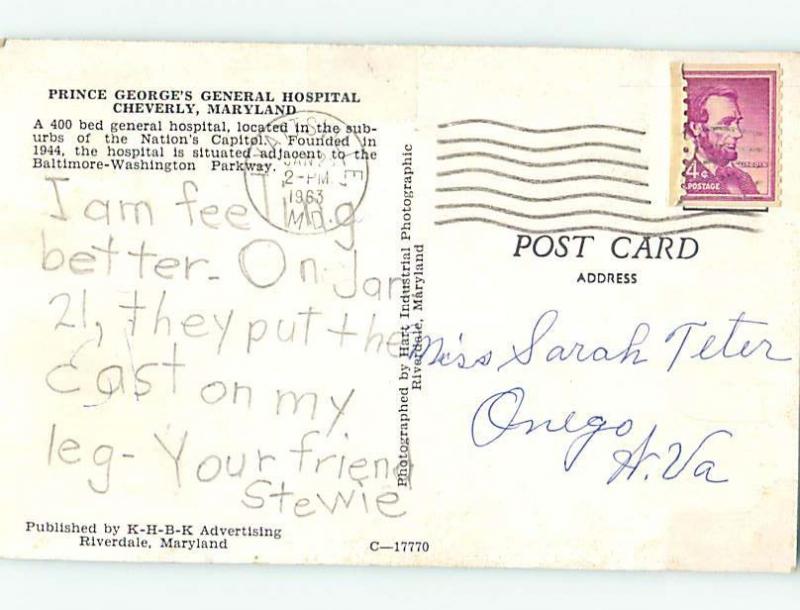 PRINCE GEORGE'S GENERAL HOSPITAL
CHEVERLY, MARYLAND
A 400 bed general hospital, located in the sub-
urbs of the Nation's Capitol. Founded in
1944, the hospital is situated adjacent to the
Baltimore-Washington Parkway.
I am feeling
better - On Jan
21, they put the
cast on my
leg - Your friend
Stewie
Published by K-H-B-K Advertising
Riverdale, Maryland
C—17770
Photographed by Hart Industrial Photographic
Riverdale, Maryland
JAN
2 - PM
1963
MD.
4¢
POSTAGE
POST CARD
ADDRESS
Miss Sarah Teter
Onego
W. Va